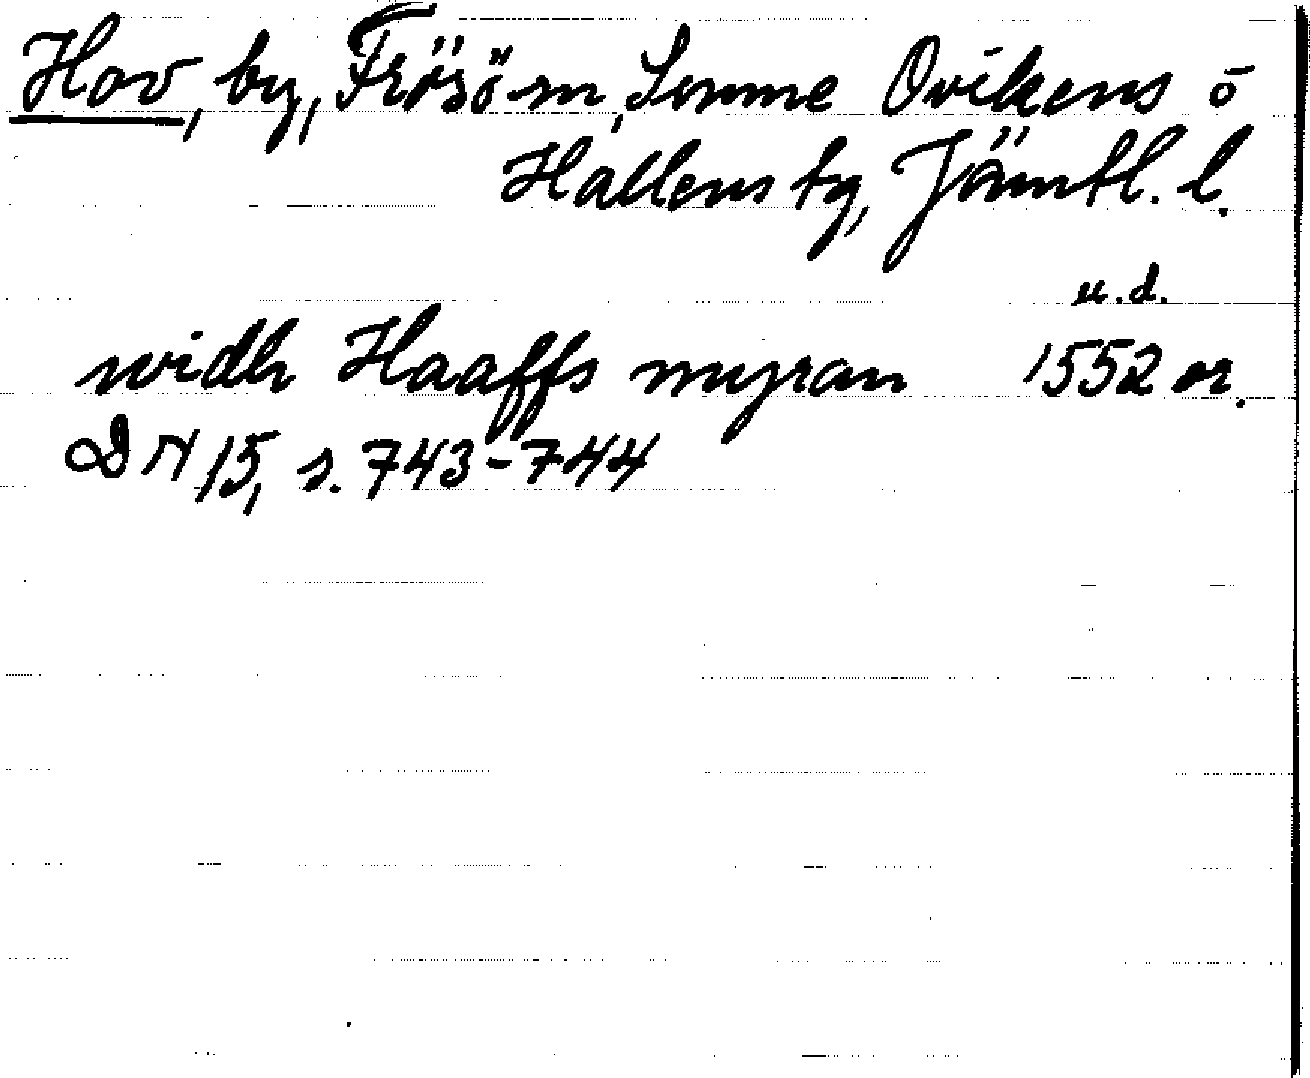 Hov, by, Frösö sn, Sunne Ovikens o
Hallens tg, Jämtl. l.
u. d.
widh Haaffs myran 1552 or.
DN 15, s. 743-744